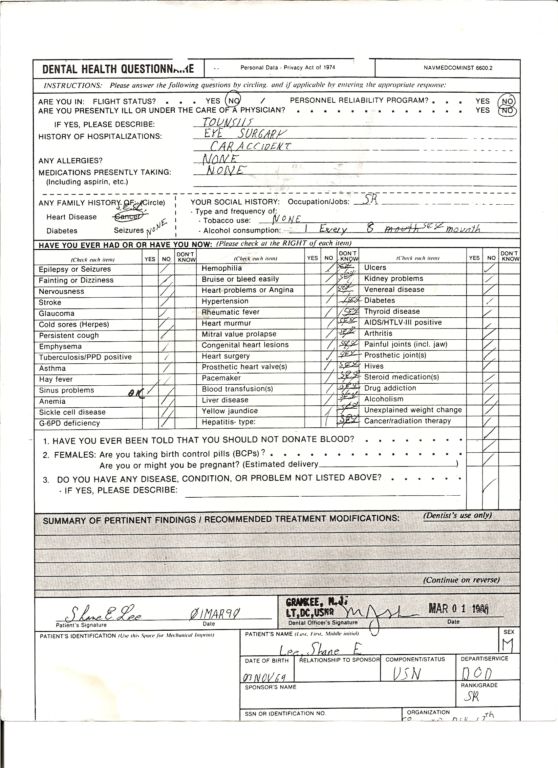 DENTAL HEALTH QUESTIONNAIRE
Personal Data - Privacy Act of 1974
NAVMEDCOMINST 6600.2
INSTRUCTIONS: Please answer the following questions by circling, and if applicable by entering the appropriate response:
ARE YOU IN: FLIGHT STATUS? . . . YES NO / PERSONNEL RELIABILITY PROGRAM? . . . YES NO
ARE YOU PRESENTLY ILL OR UNDER THE CARE OF A PHYSICIAN? . . . . . . . . . . . . YES NO
IF YES, PLEASE DESCRIBE: TOUNSILS
HISTORY OF HOSPITALIZATIONS: EYE SURGARY
CAR ACCIDENT
ANY ALLERGIES? NONE
MEDICATIONS PRESENTLY TAKING: NONE
(Including aspirin, etc.)
ANY FAMILY HISTORY OF: (Circle)
Heart Disease Cancer
Diabetes Seizures NONE
YOUR SOCIAL HISTORY: Occupation/Jobs: SR
- Type and frequency of:
- Tobacco use: NONE
- Alcohol consumption: 1 Every 8 mouth SEL mounth
HAVE YOU EVER HAD OR OR HAVE YOU NOW: (Please check at the RIGHT of each item)
(Check each item) YES NO DON'T KNOW
Epilepsy or Seizures
Fainting or Dizziness
Nervousness
Stroke
Glaucoma
Cold sores (Herpes)
Persistent cough
Emphysema
Tuberculosis/PPD positive
Asthma
Hay fever
Sinus problems
Anemia
Sickle cell disease
G-6PD deficiency
(Check each item) YES NO DON'T KNOW
Hemophilia
Bruise or bleed easily
Heart problems or Angina
Hypertension
Rheumatic fever
Heart murmur
Mitral value prolapse
Congenital heart lesions
Heart surgery
Prosthetic heart valve(s)
Pacemaker
Blood transfusion(s)
Liver disease
Yellow jaundice
Hepatitis- type:
(Check each item) YES NO DON'T KNOW
Ulcers
Kidney problems
Venereal disease
Diabetes
Thyroid disease
AIDS/HTLV-III positive
Arthritis
Painful joints (incl. jaw)
Prosthetic joint(s)
Hives
Steroid medication(s)
Drug addiction
Alcoholism
Unexplained weight change
Cancer/radiation therapy
1. HAVE YOU EVER BEEN TOLD THAT YOU SHOULD NOT DONATE BLOOD? . . . . . . .
2. FEMALES: Are you taking birth control pills (BCPs)? . . . . . . . . . . . . . .
Are you or might you be pregnant? (Estimated delivery )
3. DO YOU HAVE ANY DISEASE, CONDITION, OR PROBLEM NOT LISTED ABOVE? . . . . . .
- IF YES, PLEASE DESCRIBE:
SUMMARY OF PERTINENT FINDINGS / RECOMMENDED TREATMENT MODIFICATIONS: (Dentist's use only)
(Continue on reverse)
Shane E Lee 01MAR90
Patient's Signature Date
LT, DC, USNR
MAR 0 1
Dental Officer's Signature Date
PATIENT'S IDENTIFICATION (Use this Space for Mechanical Imprint)
PATIENT'S NAME (Last, First, Middle initial)
Lee, Shane E
SEX
M
DATE OF BIRTH
07NOV69
RELATIONSHIP TO SPONSOR
COMPONENT/STATUS
USN
DEPART/SERVICE
DOD
SPONSOR'S NAME
RANK/GRADE
SR
SSN OR IDENTIFICATION NO.
ORGANIZATION